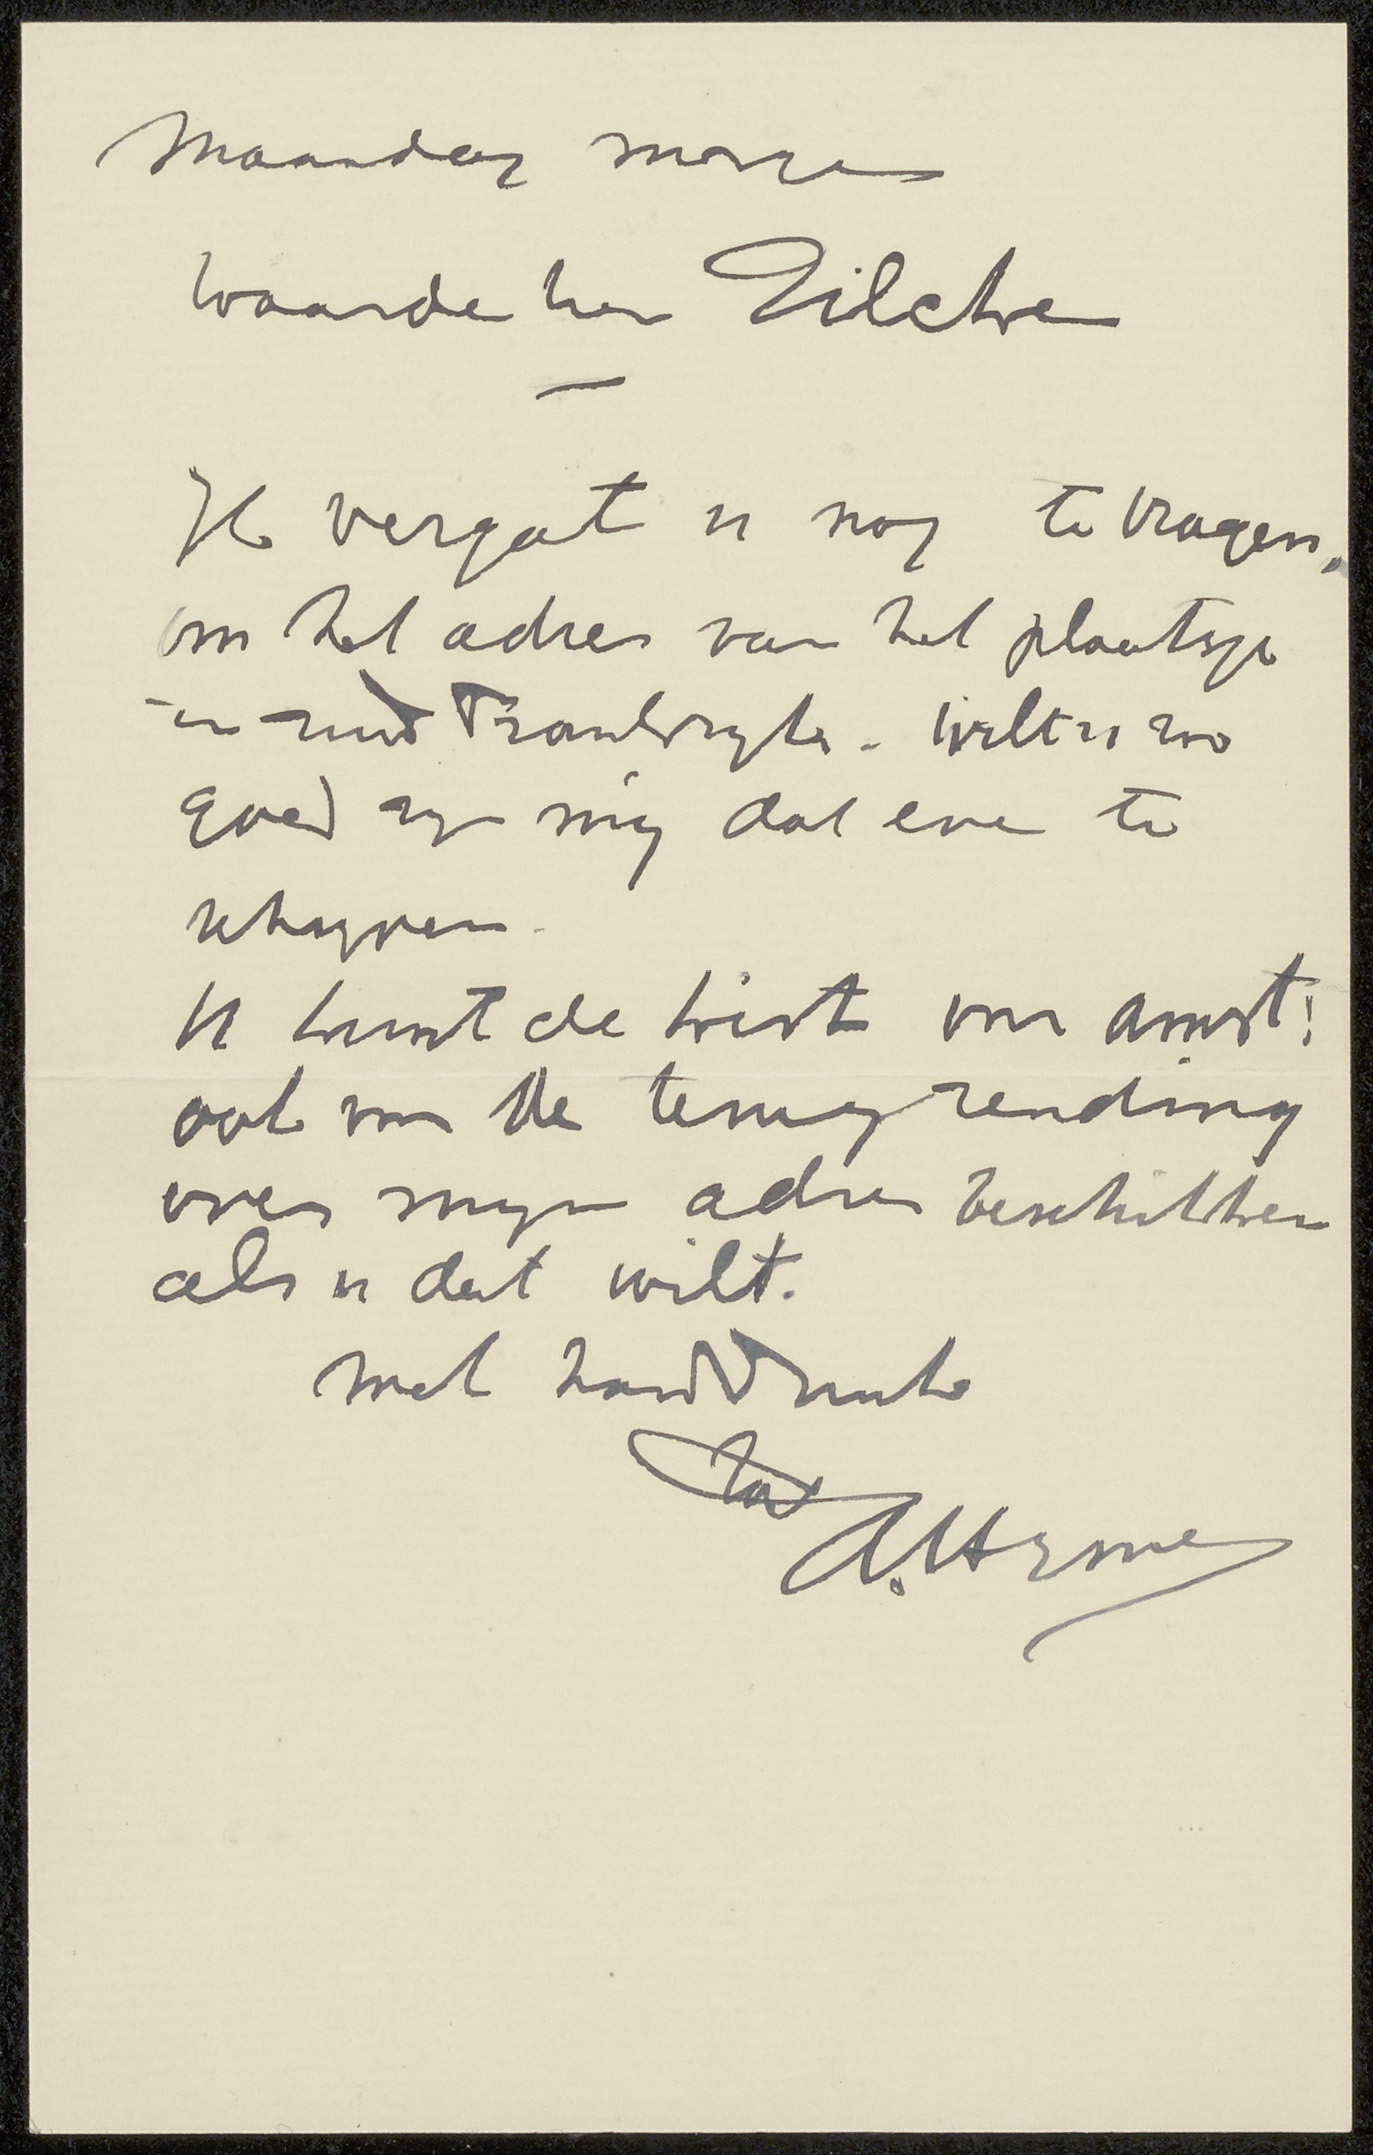 Maandag morgen
Waarde heer Zilcken
Ik vergat u nog te vragen,
om het adres van het plaatsje
in zuid Frankrijk. Wilt u zoo
goed zijn mij dat even te
schrijven.
U kunt de kist van Amst:
ook van de terugzending
over mijn adres beschikken
als u dat wilt.
met handdruk